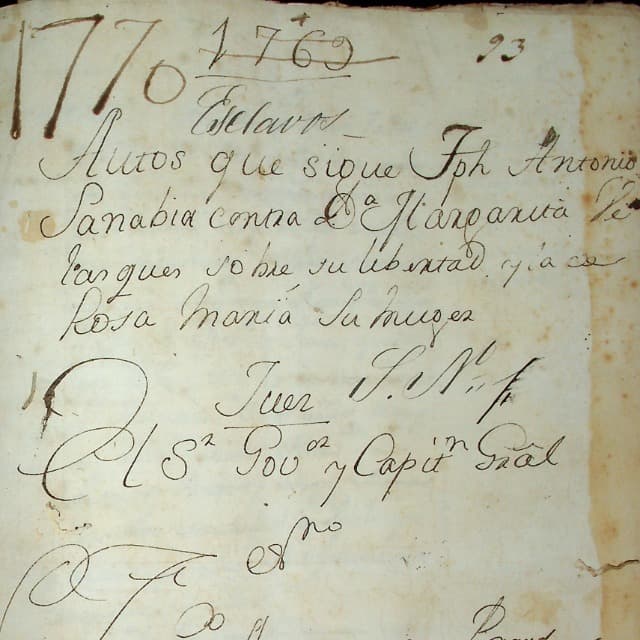 1770 1769 93
Esclavos
Autos que sigue Jph Antonio
Sanabia contra Dª Margarita Ve
lasques sobre su libertad, y la de
Rosa Maria Su muger
Juez S. N.
El Sor Govor y Capitn Gral